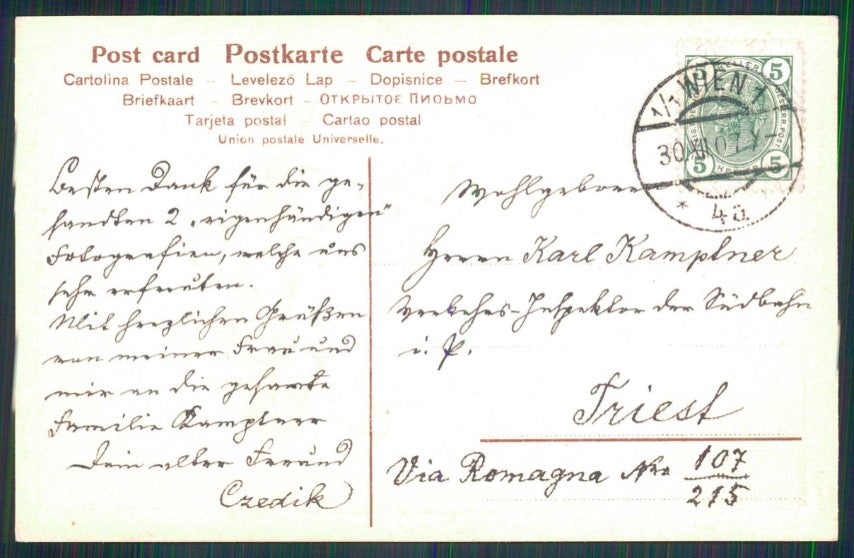 Post card Postkarte Carte postale
Cartolina Postale – Levelező Lap – Dopisnice – Brefkort
Briefkaart – Brevkort – ОТКРЫТОЕ ПИСЬМО
Tarjeta postal – Cartao postal
Union postale Universelle.
Besten Dank für die ge-
sandten 2 „eigenhändigen"
Fotografien, welche uns
sehr erfreuten.
Mit herzlichen Grüßen
von meiner Frau und
mir an die gesamte
Familie Kamptner
Dein alter Freund
Czedik
1/1 WIEN 1
30. 07
* 4a
5 HELLER 5
5 5
Wohlgeboren
Herrn Karl Kamptner
Verkehrs-Inspektor der Südbahn
i. P.
Triest
Via Romagna Nro 107
215